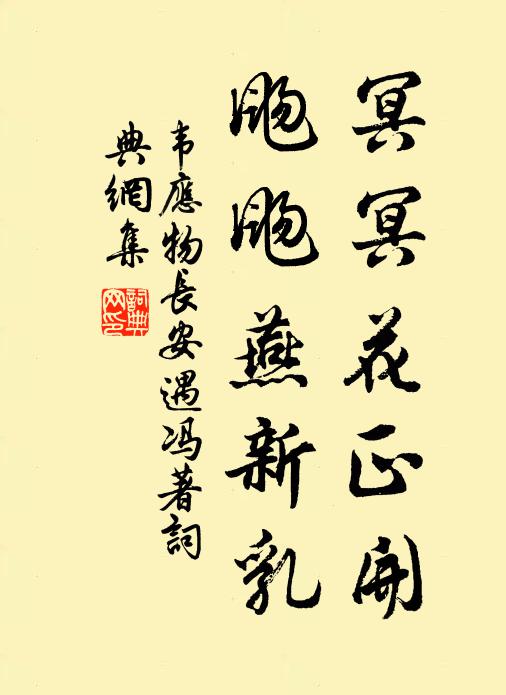 冥冥花正開
颺颺燕新乳
韦應物長安遇冯著詞
典網集
詞典
网印